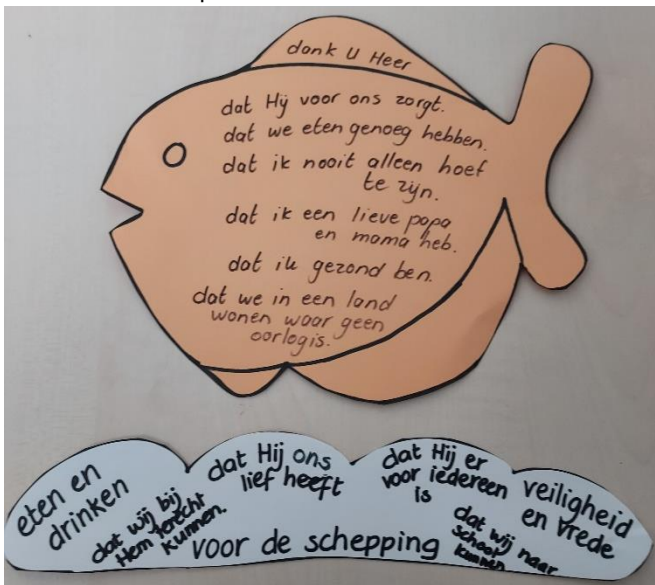 dank U Heer
dat Hij voor ons zorgt.
dat we eten genoeg hebben.
dat ik nooit alleen hoef
te zijn.
dat ik een lieve papa
en mama heb.
dat ik gezond ben.
dat we in een land
wonen waar geen
oorlog is.
eten en
drinken
dat wij bij
Hem terecht
kunnen.
dat Hij ons
lief heeft
voor de schepping
dat Hij er
voor iedereen
is
dat wij naar
school
kunnen
veiligheid
en vrede